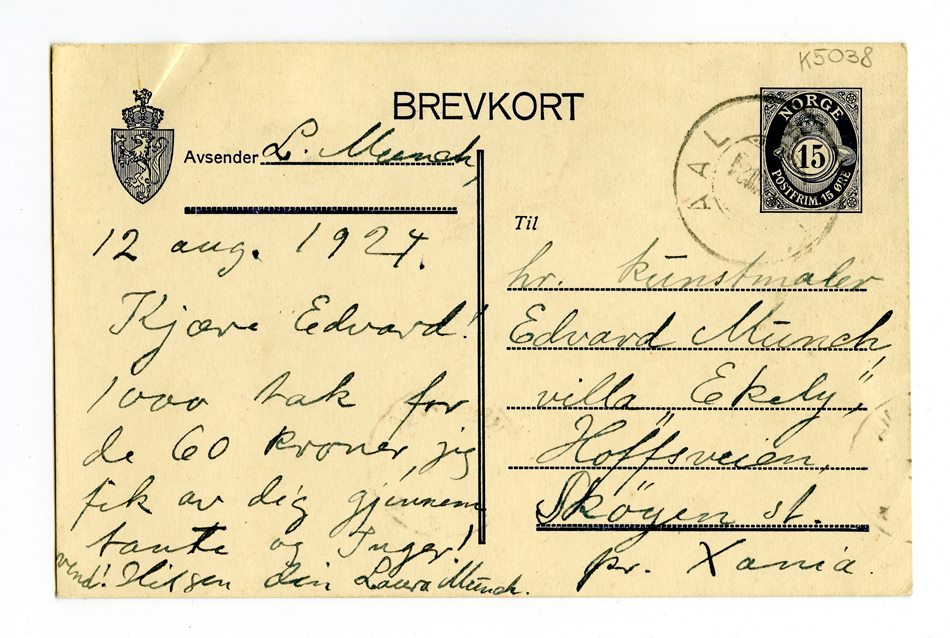 K5038
BREVKORT
Avsender L. Munch,
12 aug. 1924.
Kjære Edvard!
1000 tak for
de 60 kroner, jig
fik av dig gjennem
tante og Inger!
vend! Hilsen din Laura Munch.
NORGE
15
POSTFRIM. 15 ØRE
AAL
Til
hr. kunstmaler
Edvard Munch,
villa "Ekely",
Hoffsveien,
Sköyen st.
pr. Xania.